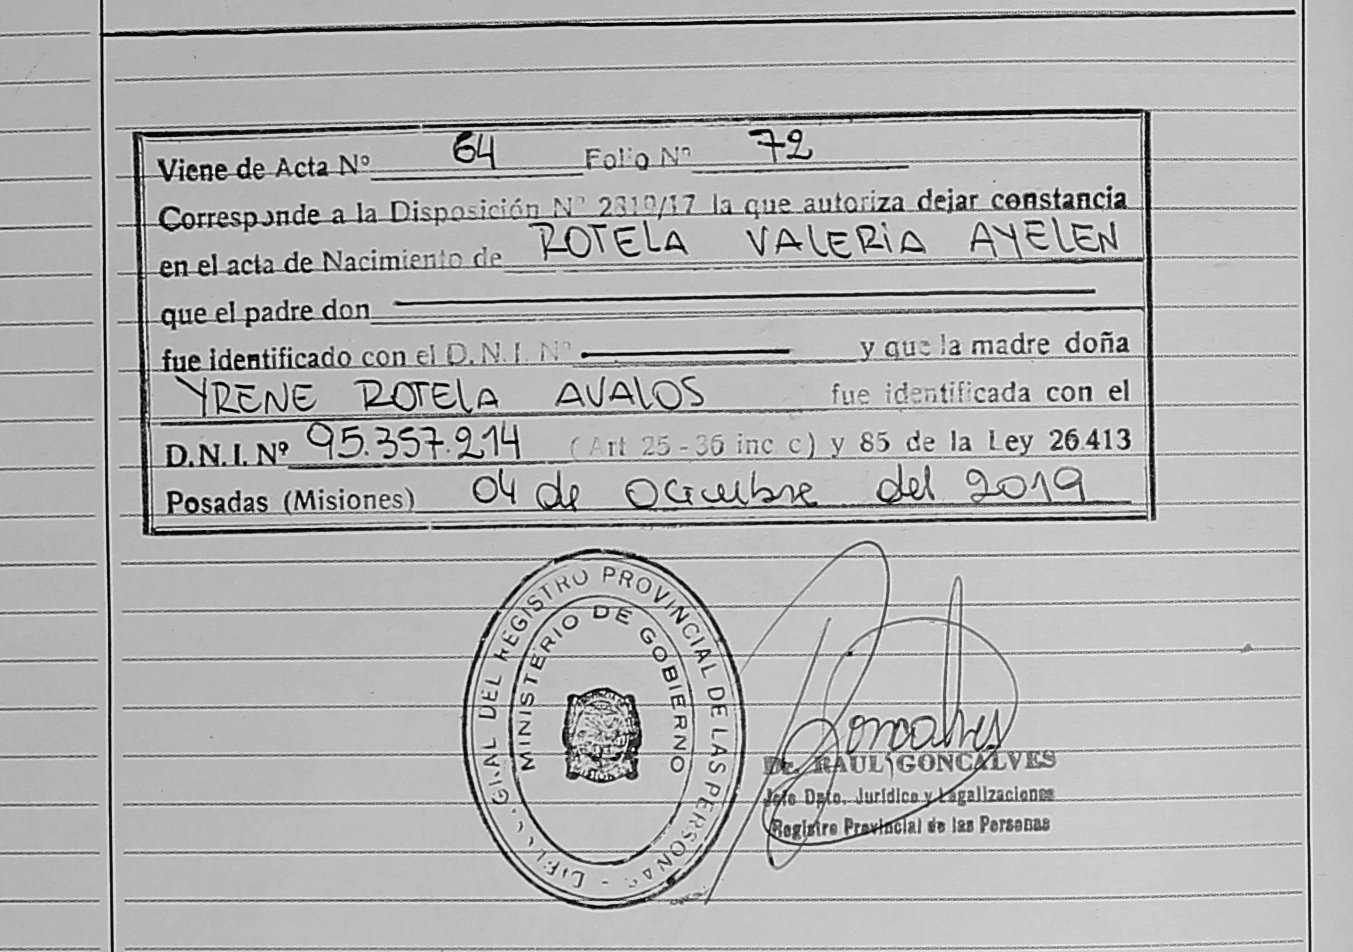 Viene de Acta Nº 64 Folio Nº 72
Corresponde a la Disposición Nº 2310/17 la que autoriza dejar constancia
en el acta de Nacimiento de ROTELA VALERIA AYELEN
que el padre don
fue identificado con el D.N.I. Nº y que la madre doña
YRENE ROTELA AVALOS fue identificada con el
D.N.I. Nº 95.357.214 (Art 25 - 36 inc c) y 85 de la Ley 26.413
Posadas (Misiones) 04 de Octubre del 2019
DEL REGISTRO PROVINCIAL DE LAS PERSONAS
MINISTERIO DE GOBIERNO
Goncalves
Dr. RAUL GONCALVES
Jefe Dpto. Jurídico y Legalizaciones
Registro Provincial de las Personas